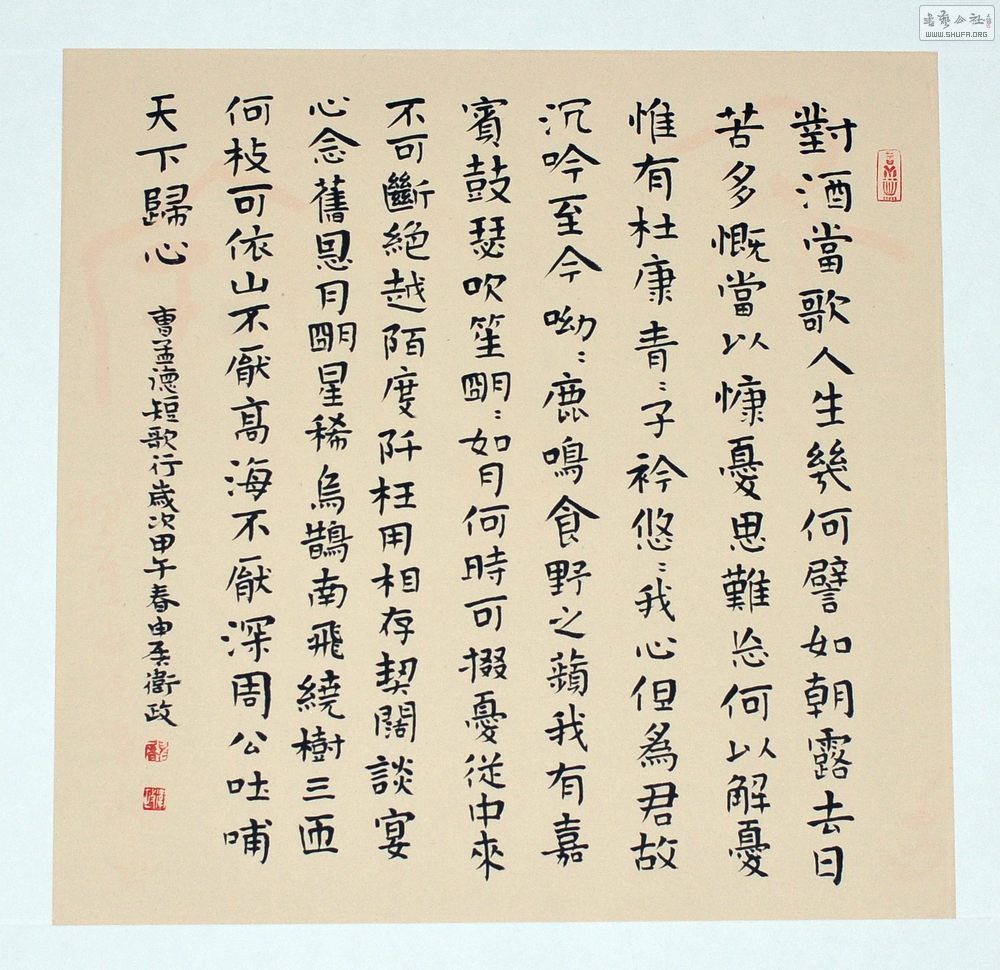 對酒當歌人生幾何譬如朝露去日
苦多慨當以慷憂思難忘何以解憂
惟有杜康青〻子衿悠〻我心但為君故
沉吟至今呦〻鹿鳴食野之蘋我有嘉
賓鼓瑟吹笙朙〻如月何時可掇憂從中來
不可斷絕越陌度阡枉用相存契闊談宴
心念舊恩月朙星稀烏鵲南飛繞樹三匝
何枝可依山不厭高海不厭深周公吐哺
天下歸心
曹孟德短歌行歲次甲午春申吳衛政
書藝公社
WWW.SHUFA.ORG